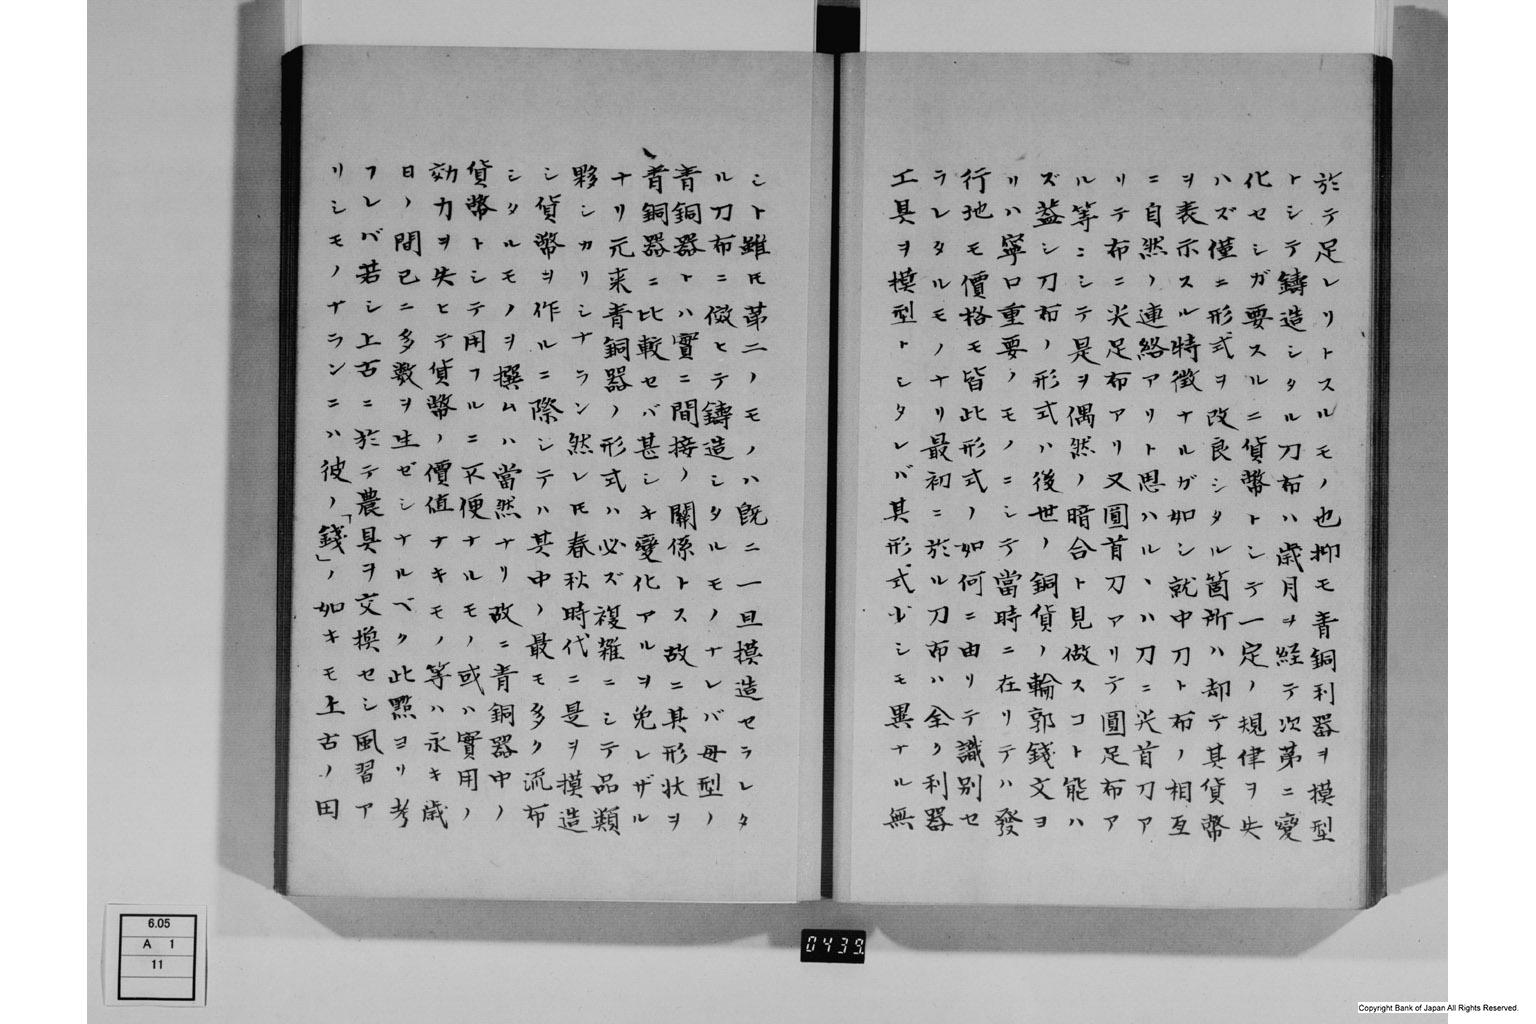 於テ足レリトスルモノ也抑モ青銅利器ヲ摸型
トシテ鑄造シタル刀布ハ歳月ヲ経テ次第ニ變
化セシガ要スルニ貨幣トシテ一定ノ規律ヲ失
ハズ僅ニ形式ヲ改良シタル箇所ハ却テ其貨幣
ヲ表示スル特徴ナルガ如シ就中刀ト布ノ相互
ニ自然ノ連絡アリト思ハルヽハ刀ニ尖首刀ア
リテ布ニ尖足布アリ又圓首刀アリテ圓足布ア
ル等ニシテ是ヲ偶然ノ暗合ト見做スコト能ハ
ズ蓋シ刀布ノ形式ハ後世ノ銅貨ノ輪郭錢文ヨ
リハ寧ロ重要ノモノニシテ當時ニ在リテハ發
行地モ價格モ皆此形式ノ如何ニ由リテ識別セ
ラレタルモノナリ最初ニ於ル刀布ハ全ク利器
工具ヲ摸型トシタレバ其形式少シモ異ナル無
シト雖㞮第二ノモノハ既ニ一旦摸造セラレタ
ル刀布ニ倣ヒテ鑄造シタルモノナレバ母型ノ
青銅器トハ實ニ間接ノ關係トス故ニ其形状ヲ
青銅器ニ比較セバ甚シキ變化アルヲ免レザル
ナリ元来青銅器ノ形式ハ必ズ複雑ニシテ品類
夥シカリシナラン然レ㞮春秋時代ニ是ヲ摸造
シ貨幣ヲ作ルニ際シテハ其中ノ最モ多ク流布
シタルモノヲ撰ムハ當然ナリ故ニ青銅器中ノ
貨幣トシテ用フルニ不便ナルモノ或ハ實用ノ
効力ヲ失ヒテ貨幣ノ價值ナキモノ等ハ永キ歳
日ノ間已ニ多數ヲ生ゼシナルベク此點ヨリ考
フレバ若シ上古ニ於テ農具ヲ交換セシ風習ア
リシモノナランニハ彼ノ「錢」ノ如キモ上古ノ田
6.05
A 1
11
0439
Copyright Bank of Japan All Rights Reserved.